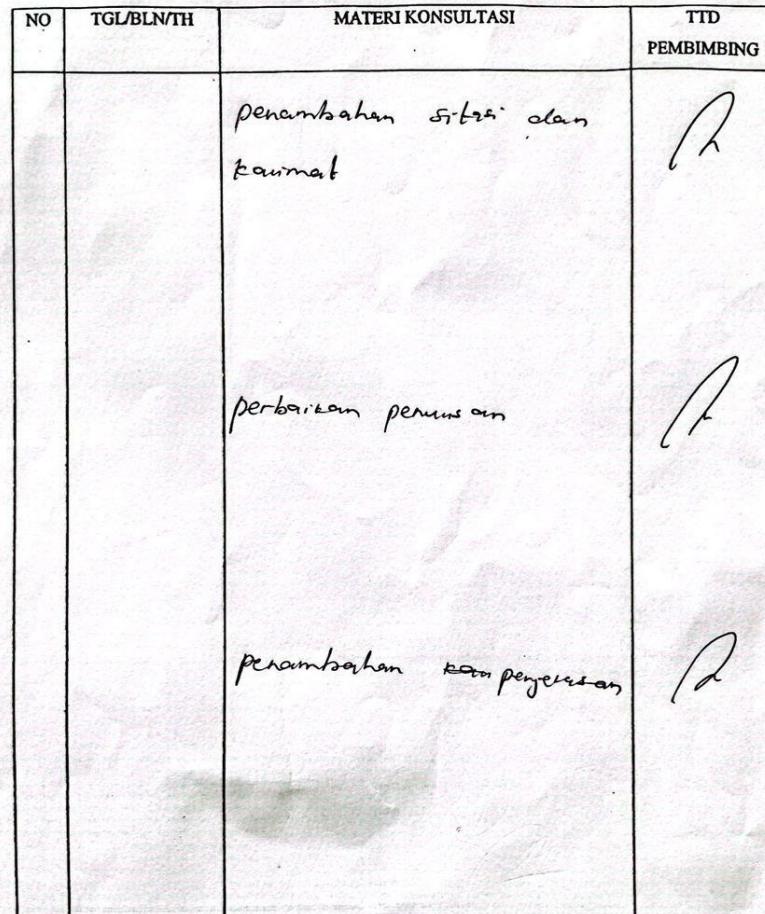 NO TGL/BLN/TH MATERI KONSULTASI TTD
PEMBIMBING
penambahan sitasi dan
kalimat
perbaikan penulisan
penambahan penjelasan